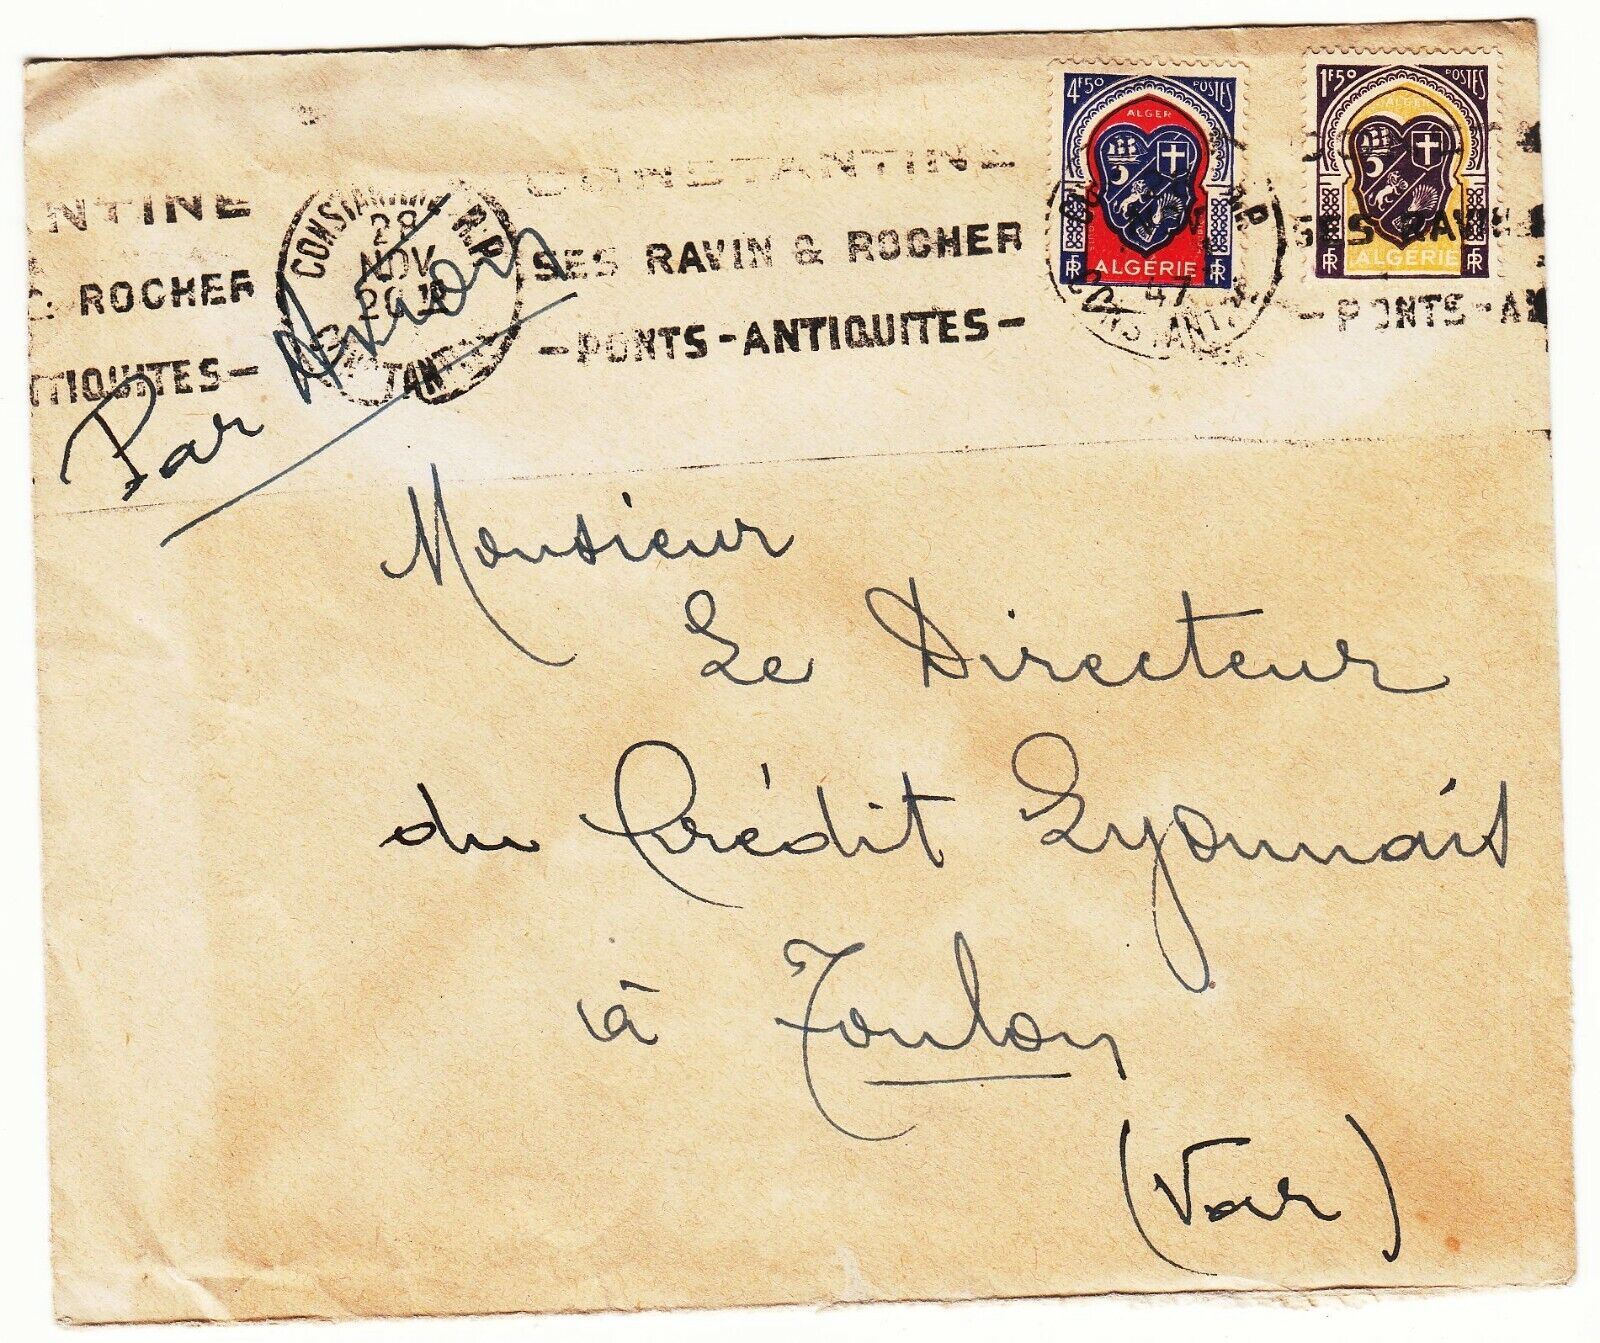 4F50 POSTES
ALGER
ALGÉRIE
RF RF
1F50 POSTES
ALGER
ALGÉRIE
RF RF
NTINE
& ROCHER
TIQUITES -
CONSTANTINE R.P.
28
NOV
20
CONSTANTINE
CONSTANTINE
SES RAVIN & ROCHER
- PONTS - ANTIQUITES -
47
CONSTANTINE
SES RAVIN
- PONTS - A
Par Avion
Monsieur
Le Directeur
du Crédit Lyonnais
à Toulon
(Var)